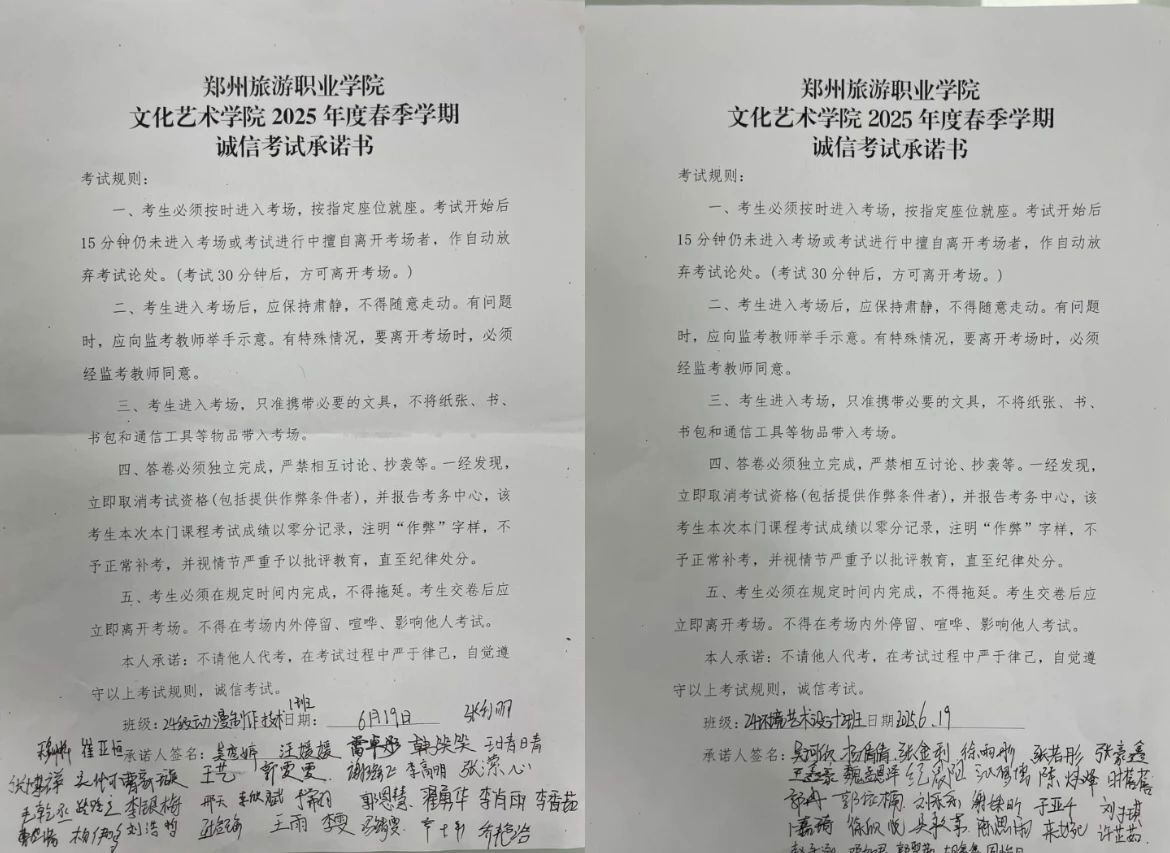 郑州旅游职业学院
文化艺术学院 2025 年度春季学期
诚信考试承诺书
考试规则:
一、考生必须按时进入考场，按指定座位就座。考试开始后
15 分钟仍未进入考场或考试进行中擅自离开考场者，作自动放
弃考试论处。(考试 30 分钟后，方可离开考场。)
二、考生进入考场后，应保持肃静，不得随意走动。有问题
时，应向监考教师举手示意。有特殊情况，要离开考场时，必须
经监考教师同意。
三、考生进入考场，只准携带必要的文具，不将纸张、书、
书包和通信工具等物品带入考场。
四、答卷必须独立完成，严禁相互讨论、抄袭等。一经发现，
立即取消考试资格(包括提供作弊条件者)，并报告考务中心，该
考生本次本门课程考试成绩以零分记录，注明“作弊”字样，不
予正常补考，并视情节严重予以批评教育，直至纪律处分。
五、考生必须在规定时间内完成，不得拖延。考生交卷后应
立即离开考场。不得在考场内外停留、喧哗、影响他人考试。
本人承诺: 不请他人代考，在考试过程中严于律己，自觉遵
守以上考试规则，诚信考试。
班级: 24级动漫制作技术1班 日期: 6月19日
崔亚恒 承诺人签名: 汪媛媛
王艺 李高明
李银梅 郭恩慧 李肖雨
刘浩哲 王雨 李雯
郑州旅游职业学院
文化艺术学院 2025 年度春季学期
诚信考试承诺书
考试规则:
一、考生必须按时进入考场，按指定座位就座。考试开始后
15 分钟仍未进入考场或考试进行中擅自离开考场者，作自动放
弃考试论处。(考试 30 分钟后，方可离开考场。)
二、考生进入考场后，应保持肃静，不得随意走动。有问题
时，应向监考教师举手示意。有特殊情况，要离开考场时，必须
经监考教师同意。
三、考生进入考场，只准携带必要的文具，不将纸张、书、
书包和通信工具等物品带入考场。
四、答卷必须独立完成，严禁相互讨论、抄袭等。一经发现，
立即取消考试资格(包括提供作弊条件者)，并报告考务中心，该
考生本次本门课程考试成绩以零分记录，注明“作弊”字样，不
予正常补考，并视情节严重予以批评教育，直至纪律处分。
五、考生必须在规定时间内完成，不得拖延。考生交卷后应
立即离开考场。不得在考场内外停留、喧哗、影响他人考试。
本人承诺: 不请他人代考，在考试过程中严于律己，自觉遵
守以上考试规则，诚信考试。
班级: 24环境艺术设计2班 日期 2025.6.19
承诺人签名: 吴可欣 杨倩倩 张金利 张若彤 张豪鑫